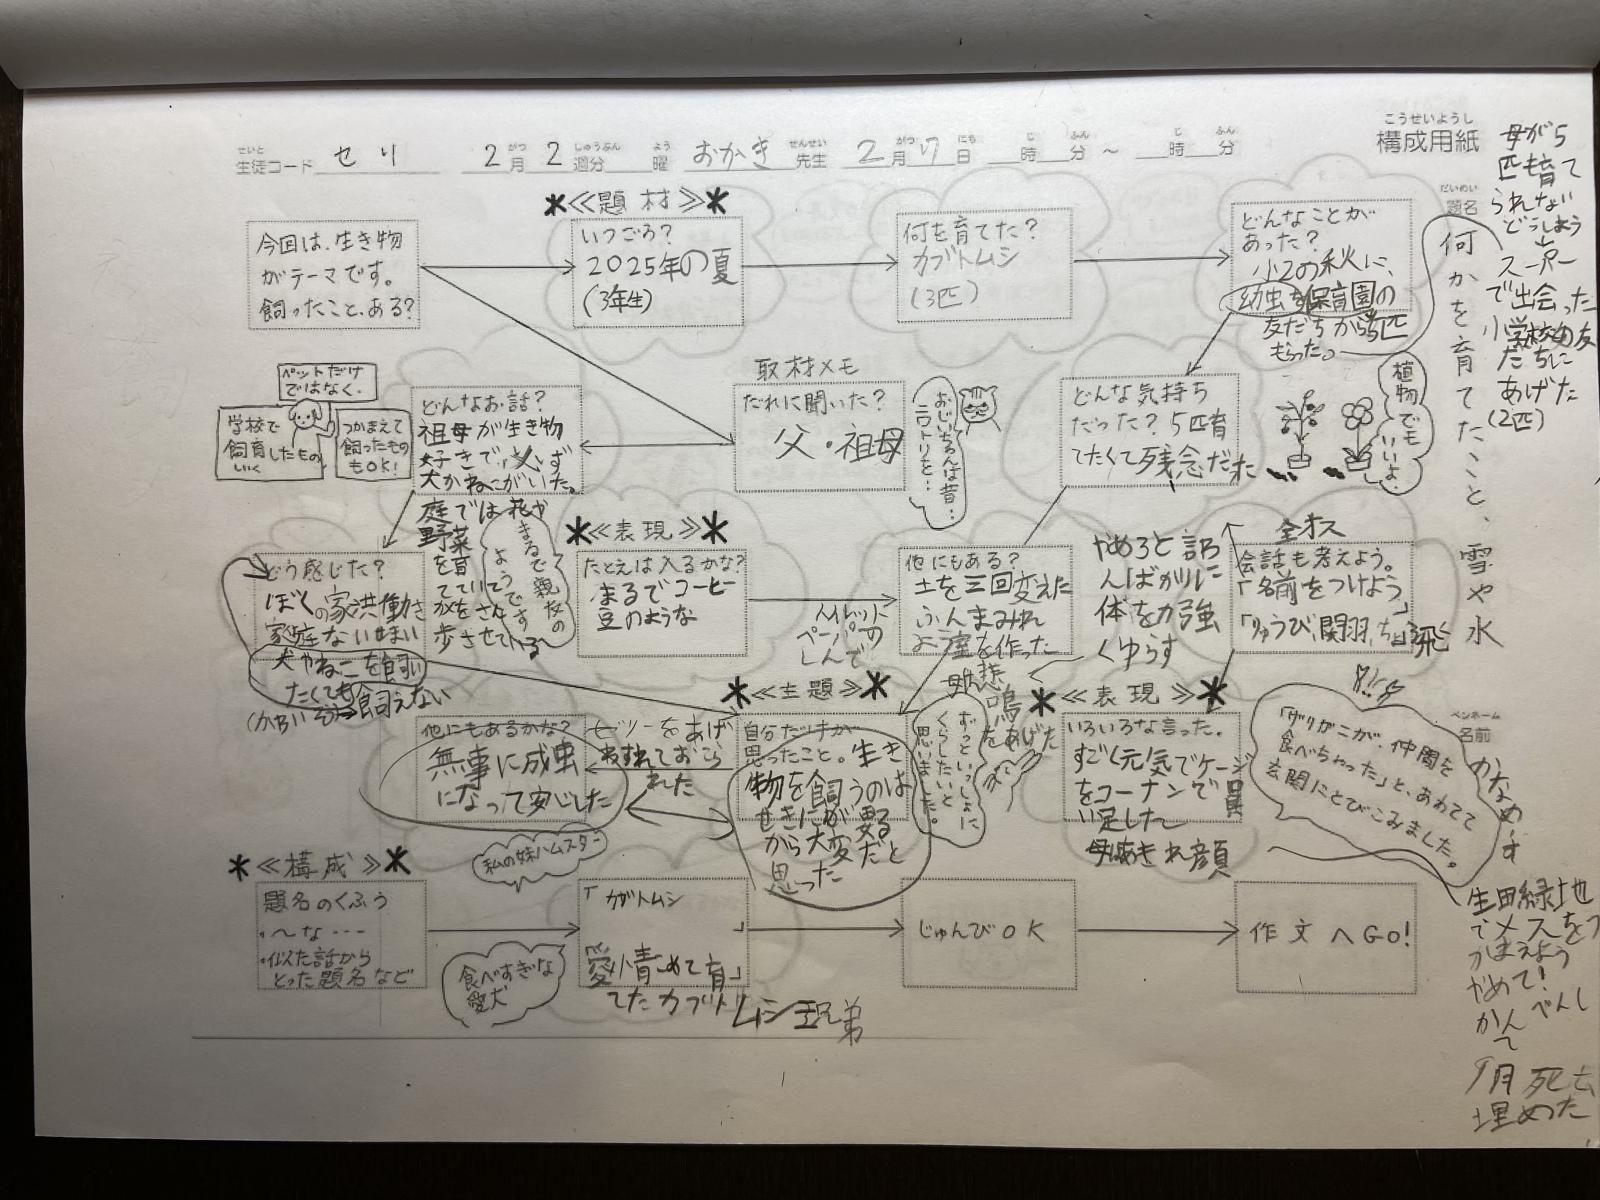 こうせいようし
構成用紙
せいと
生徒コード せり
2月2週分 曜
おかき先生
2月17日 時 分 ~ 時 分
だいめい
題名
何かを育てたこと、雪や氷
ペンネーム
名前
かなめ
母がら
匹も育て
られない
どうしよう
スーパー
で出会った
小学校の友
だちに
あげた
(2匹)
今回は、生き物
がテーマです。
飼ったこと、ある?
≪題材≫
いつごろ?
2025年の夏
(3年生)
何を育てた?
カブトムシ
(3匹)
どんなことが
あった?
小2の秋に、
幼虫を保育園の
友だちから5匹
もらった。
ペットだけ
ではなく、
学校で
飼育したもの
つかまえて
飼ったもの
もOK!
どんなお話?
祖母が生き物
好きで、必ず
犬かねこがいた。
庭では花や
野菜
を育
てて
取材メモ
だれに聞いた?
父・祖母
おじいちゃんは昔…
ニワトリを…
どんな気持ち
だった? 5匹育
てたくて残念だった
植物でも
いいよ。
どう感じた?
ぼくの家共働き
家庭ないせまい
犬やねこを飼い
たくても飼えない
(かわいそう)
まるで親友の
ようです。
≪表現≫
たとえは入るかな?
まるでコーヒー
豆のような
他にもある?
土を三回変えた
ふんまみれ
よう室を作った
母悲鳴
をあげた
やめろと言
んばかりに
体を力強
くゆらす
全オス
会話も考えよう。
「名前をつけよう」
「りゅうび、関羽、ちょう飛」
他にもあるかな?
無事に成虫
になって安心した
ゼリーをあげ
わすれておこら
れた
≪主題≫
自分だけが
思ったこと。生き
物を飼うのは
せきにんが要る
から大変だと
思った
ずっといっしょに
くらしたいと
思いました。
≪表現≫
いろいろな言った。
すごく元気でケージ
をコーナンで買
い足した
母はあきれ顔
「ザリガニが、仲間を
食べちゃった」と、あわてて
玄関にとびこみました。
生田緑地
でメスをつ
かまえよう
やめて!
かんべんし
て
9月死去
埋めた
≪構成≫
題名のくふう
・~な…
・似た話から
とった題名など
私の妹ハムスター
食べすぎな
愛犬
「カブトムシ
」
愛情こめて育
てたカブトムシ兄弟
じゅんびOK
作文へGo!